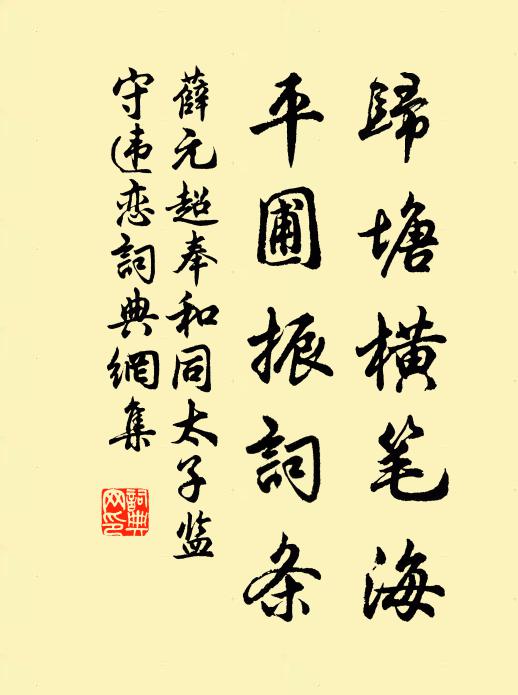 歸塘横笔海
平圃振詞条
薛元超奉和同太子监
守违恋詞典網集
詞典
网印